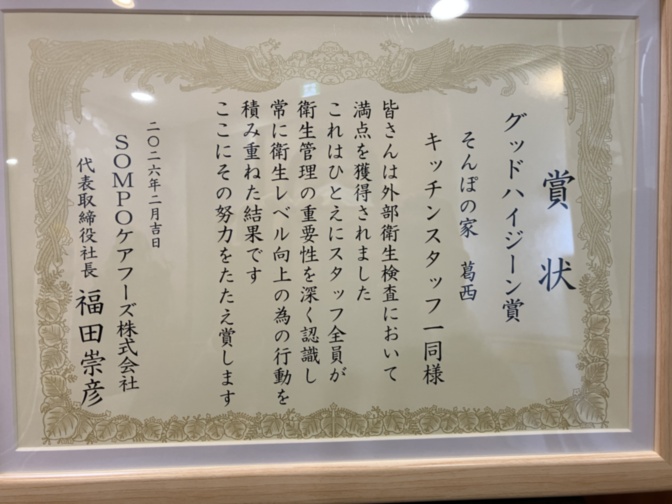 賞状
グッドハイジーン賞
そんぽの家 葛西
キッチンスタッフ一同様
皆さんは外部衛生検査において
満点を獲得されました
これはひとえにスタッフ全員が
衛生管理の重要性を深く認識し
常に衛生レベル向上の為の行動を
積み重ねた結果です
ここにその努力をたたえ賞します
二〇二六年二月吉日
SOMPOケアフーズ株式会社
代表取締役社長 福田崇彦